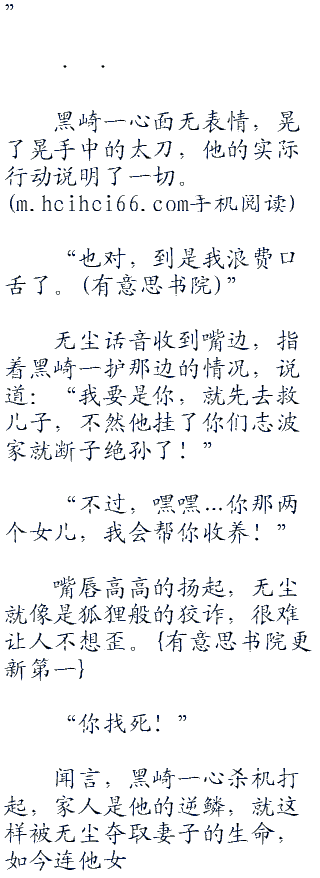 ”
· ·
黑崎一心面无表情，晃
了晃手中的太刀，他的实际
行动说明了一切。
(m.hcihci66.com手机阅读)
“也对，到是我浪费口
舌了。(有意思书院)”
无尘话音收到嘴边，指
着黑崎一护那边的情况，说
道：“我要是你，就先去救
儿子，不然他挂了你们志波
家就断子绝孙了！”
“不过，嘿嘿…你那两
个女儿，我会帮你收养！”
嘴唇高高的扬起，无尘
就像是狐狸般的狡诈，很难
让人不想歪。{有意思书院更
新第一}
“你找死！”
闻言，黑崎一心杀机打
起，家人是他的逆鳞，就这
样被无尘夺取妻子的生命，
如今连他女